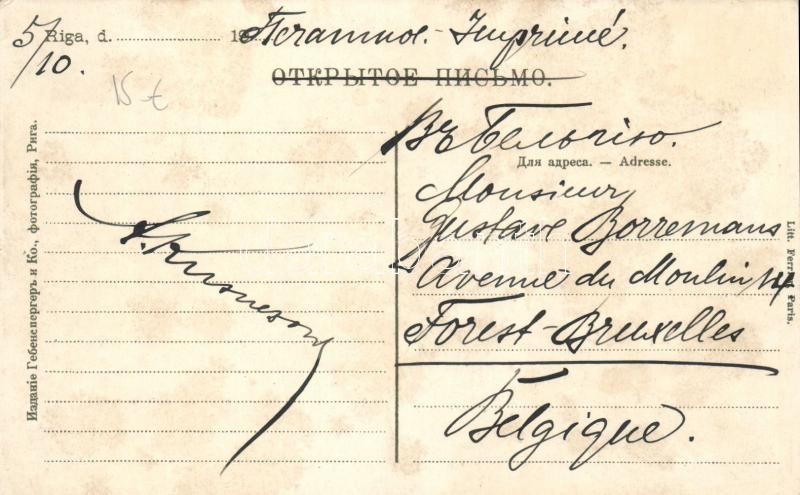 5/10.
Riga, d. 19
Печатное. Imprimé.
ОТКРЫТОЕ ПИСЬМО.
15 €
Въ Бельгію.
Для адреса. — Adresse.
Monsieur
Gustave Borremans
Avenue du Moulin 14
Forest-Bruxelles
Belgique.
Изданіе Гебенспергеръ и Ко., фотографія, Рига.
Paris.